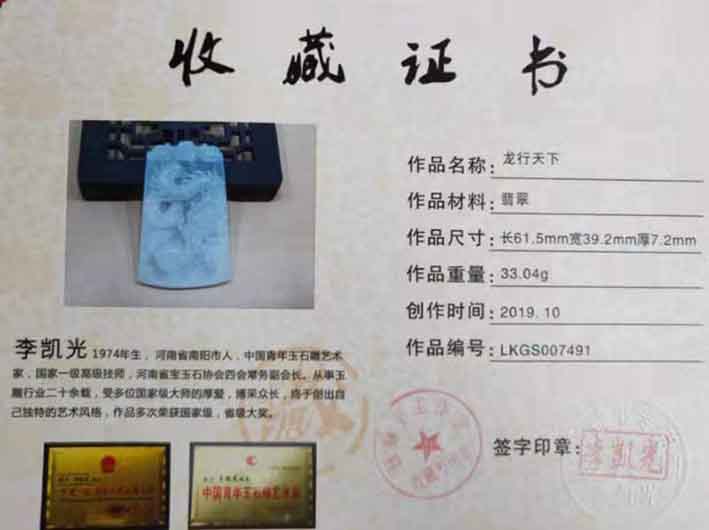 收藏证书
作品名称：龙行天下
作品材料：翡翠
作品尺寸：长61.5mm宽39.2mm厚7.2mm
作品重量：33.04g
创作时间：2019.10
作品编号：LKGS007491
李凯光 1974年生，河南省南阳市人，中国青年玉石雕艺术
家，国家一级高级技师，河南省宝玉石协会四会常务副会长。从事玉
雕行业二十余载，受多位国家级大师的厚爱，博采众长，终于创出自
己独特的艺术风格，作品多次荣获国家级，省级大奖。
中国青年玉石雕艺术家
签字印章：李凯光